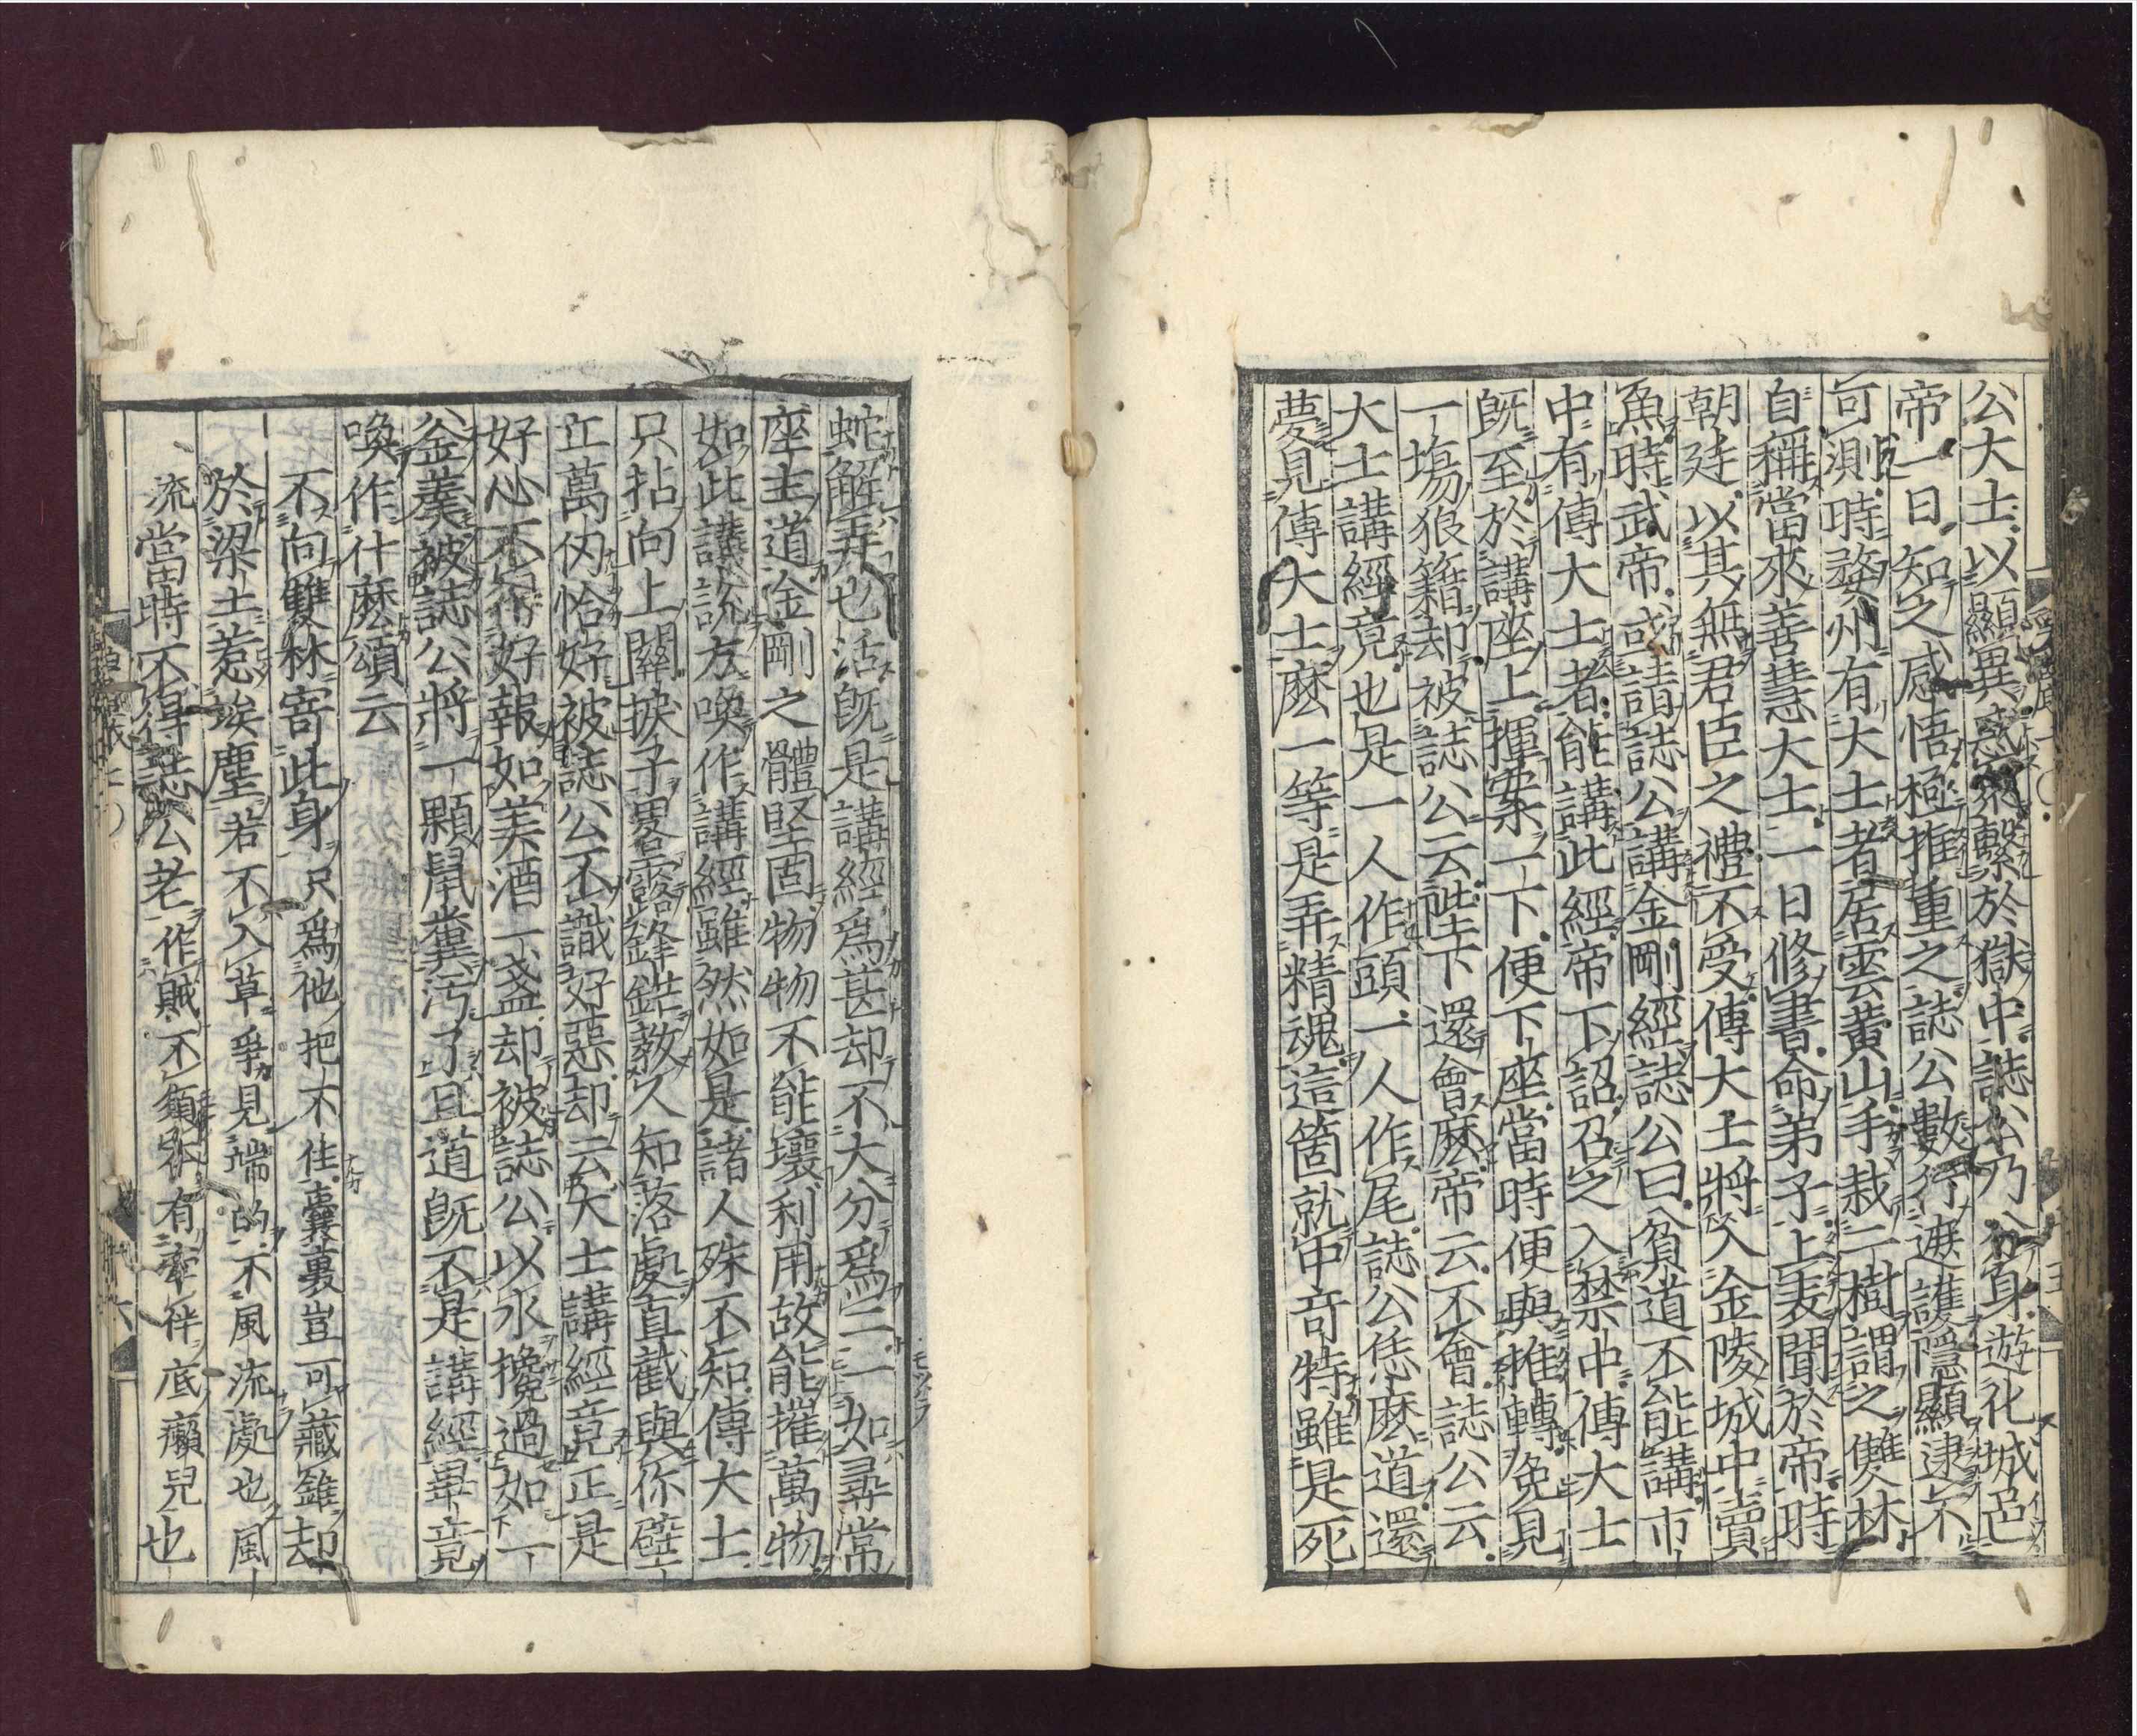 公大士以顯異惑衆繫於獄中誌公乃分身遊化城邑
帝一日知之感悟極推重之誌公數行遮護隱顯逮不
可測時婺州有大士者居雲黃山手栽二樹謂之雙林
自稱當來善慧大士一日修書命弟子上表聞於帝時
朝廷以其無君臣之禮不受傅大士將入金陵城中賣
魚時武帝或請誌公講金剛經誌公曰貧道不能講市
中有傅大士者能講此經帝下詔召之入禁中傅大士
既至於講座上揮案一下便下座當時便與推轉免見
一塲狼籍却被誌公云陛下還會麽帝云不會誌公云
大士講經竟也是一人作頭一人作尾誌公恁麽道還
夢見傅大士麽一等是弄精魂這箇就中奇特雖是死
蛇解弄也活既是講經爲甚却不大分爲二一如尋常
座主道金剛之體堅固物物不能壞利用故能摧萬物
如此講說方喚作講經雖然如是諸人殊不知傅大士
只拈向上關捩子畧露鋒鋩教人知落處直截與你壁
立萬仭恰好被誌公不識好惡却云大士講經竟正是
好心不得好報如美酒一盞却被誌公以水攙過如一
釜羹被誌公將一顆鼠糞汚了且道既不是講經畢竟
喚作什麽頌云
不向雙林寄此身只爲他把不住囊裏豈可藏錐却
於梁土惹埃塵若不入草爭見端的不風流處也風
流當時不得誌公老作賊不須本有牽伴底癩兒也